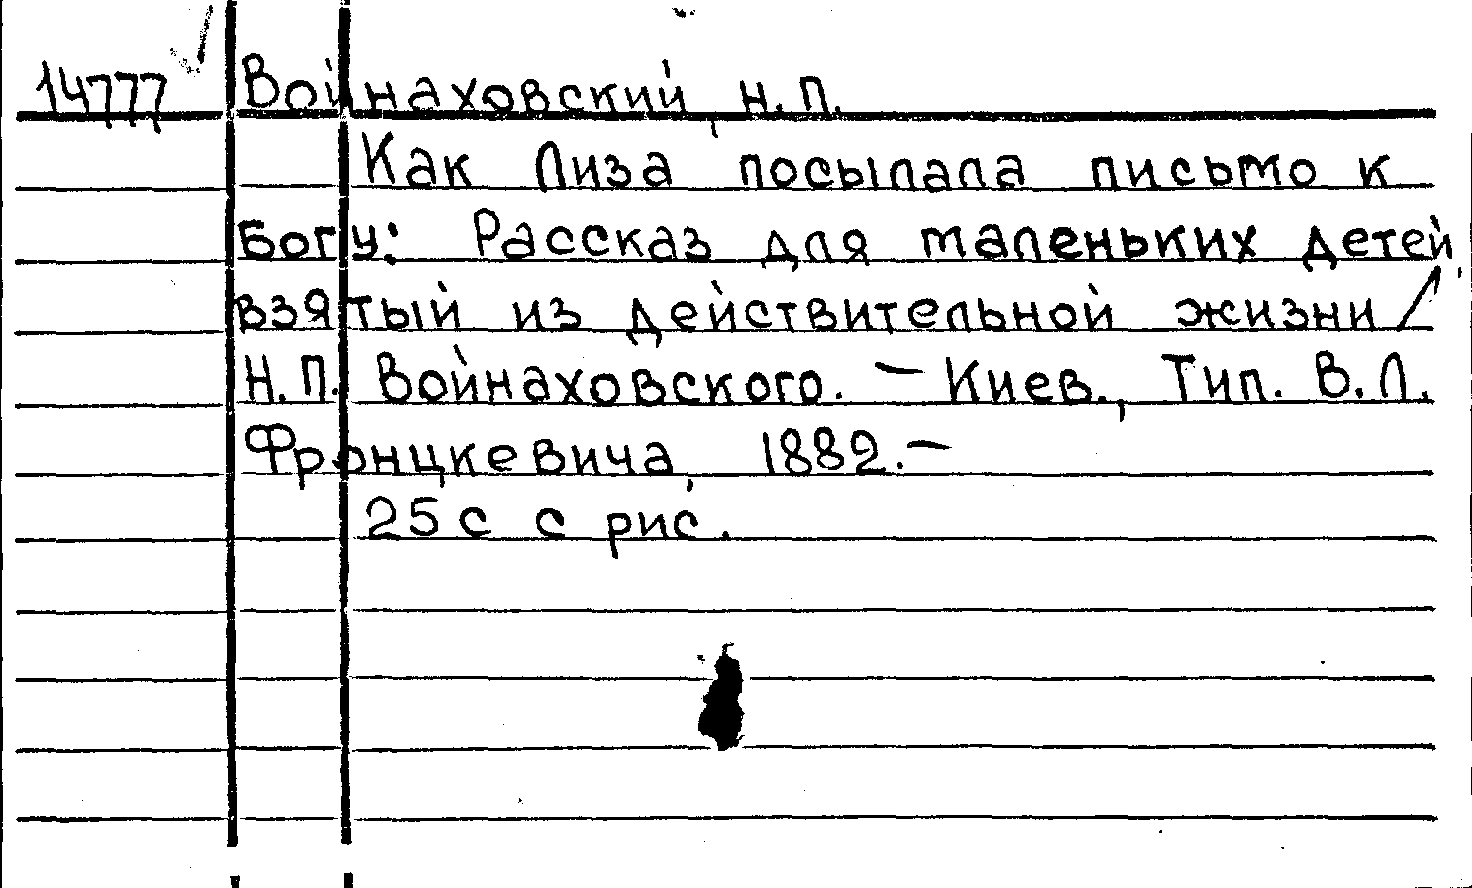 14777 Войнаховский, Н.П.
Как Лиза посылала письмо к
Богу: Рассказ для маленьких детей,
взятый из действительной жизни /
Н.П. Войнаховского. – Киев., Тип. В.Л.
Фронцкевича, 1882. –
25 с с рис.